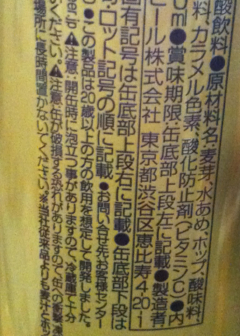 酸飲料●原材料名:麦芽、水あめ、ホップ、酸味料、
料、カラメル色素、酸化防止剤(ビタミンC)●内
0ml●賞味期限:缶底部上段右に記載●製造者
ビール株式会社 東京都渋谷区恵比寿4-20-1
固有記号は缶底部上段左に記載●缶底部下段は
号、ロット記号の順に記載●お問い合せ先お客様センター
●この製品は20歳以上の方の飲用を想定して開発しました。
ださい。⚠注意:開缶時に泡立つ事がありますので、冷蔵庫で十分
⚠注意:缶が破損する恐れがありますので、缶への衝撃、
場所に長時間置かないでください。※当社従来品よりも麦汁とホップ